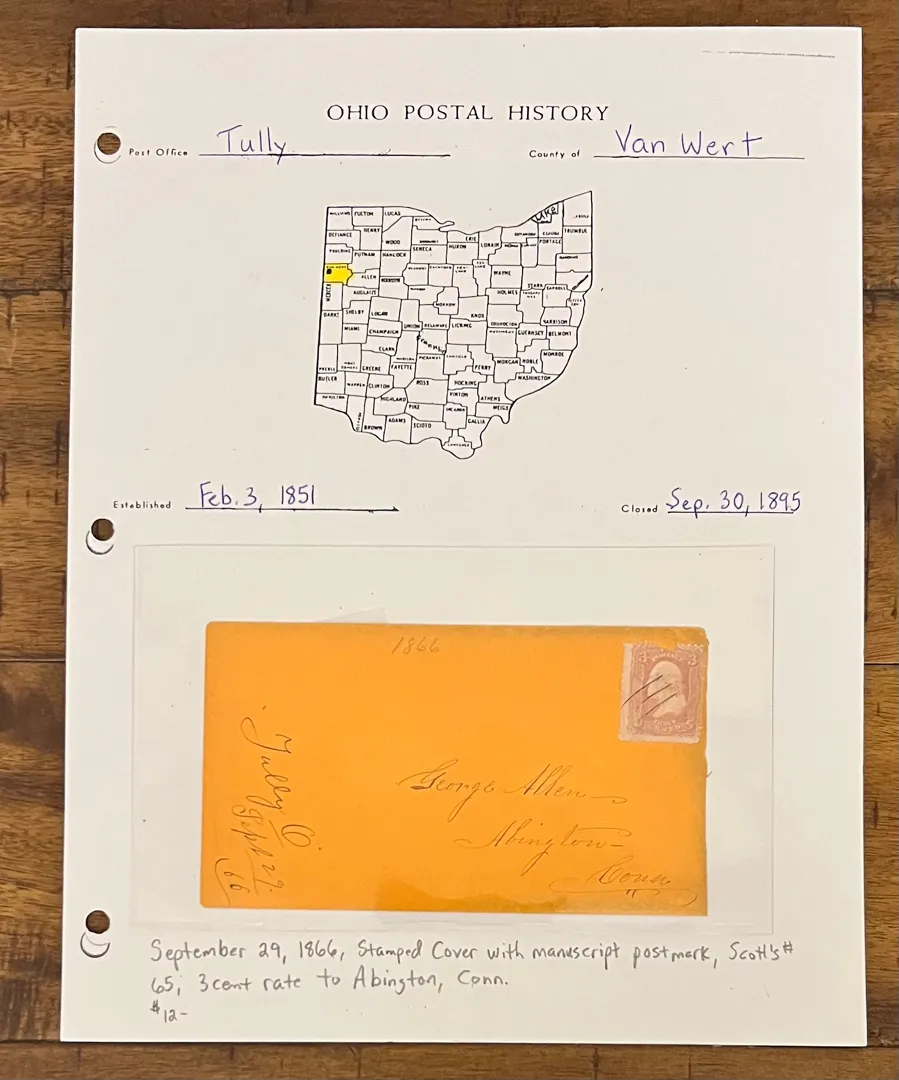 OHIO POSTAL HISTORY
Post Office Tully County of Van Wert
WILLIAMS FULTON LUCAS OTTAWA Lake
DEFIANCE HENRY WOOD ERIE LORAIN CUYAHOGA GEAUGA TRUMBUL
PAULDING PUTNAM HANCOCK SENECA HURON PORTAGE
VAN WERT ALLEN WAYNE
MERCER AUGLAIZE HOLMES STARK CARROLL
MORROW
DARKE SHELBY LOGAN KNOX
UNION DELAWARE LICKING COSHOCTON HARRISON
MIAMI CHAMPAIGN GUERNSEY BELMONT
Franklin
CLARK MADISON PICKAWAY FAIRFIELD PERRY MORGAN NOBLE MONROE
PREBLE GREENE FAYETTE
BUTLER WARREN CLINTON ROSS HOCKING WASHINGTON
HAMILTON HIGHLAND VINTON ATHENS
PIKE MEIGS
BROWN ADAMS SCIOTO GALLIA
Established Feb. 3, 1851 Closed Sep. 30, 1895
1866
3 3
Tully O.
Sept 29.
66
George Allen
Abington
Conn
September 29, 1866, Stamped Cover with manuscript postmark, Scott's #
65; 3 cent rate to Abington, Conn.
$12-